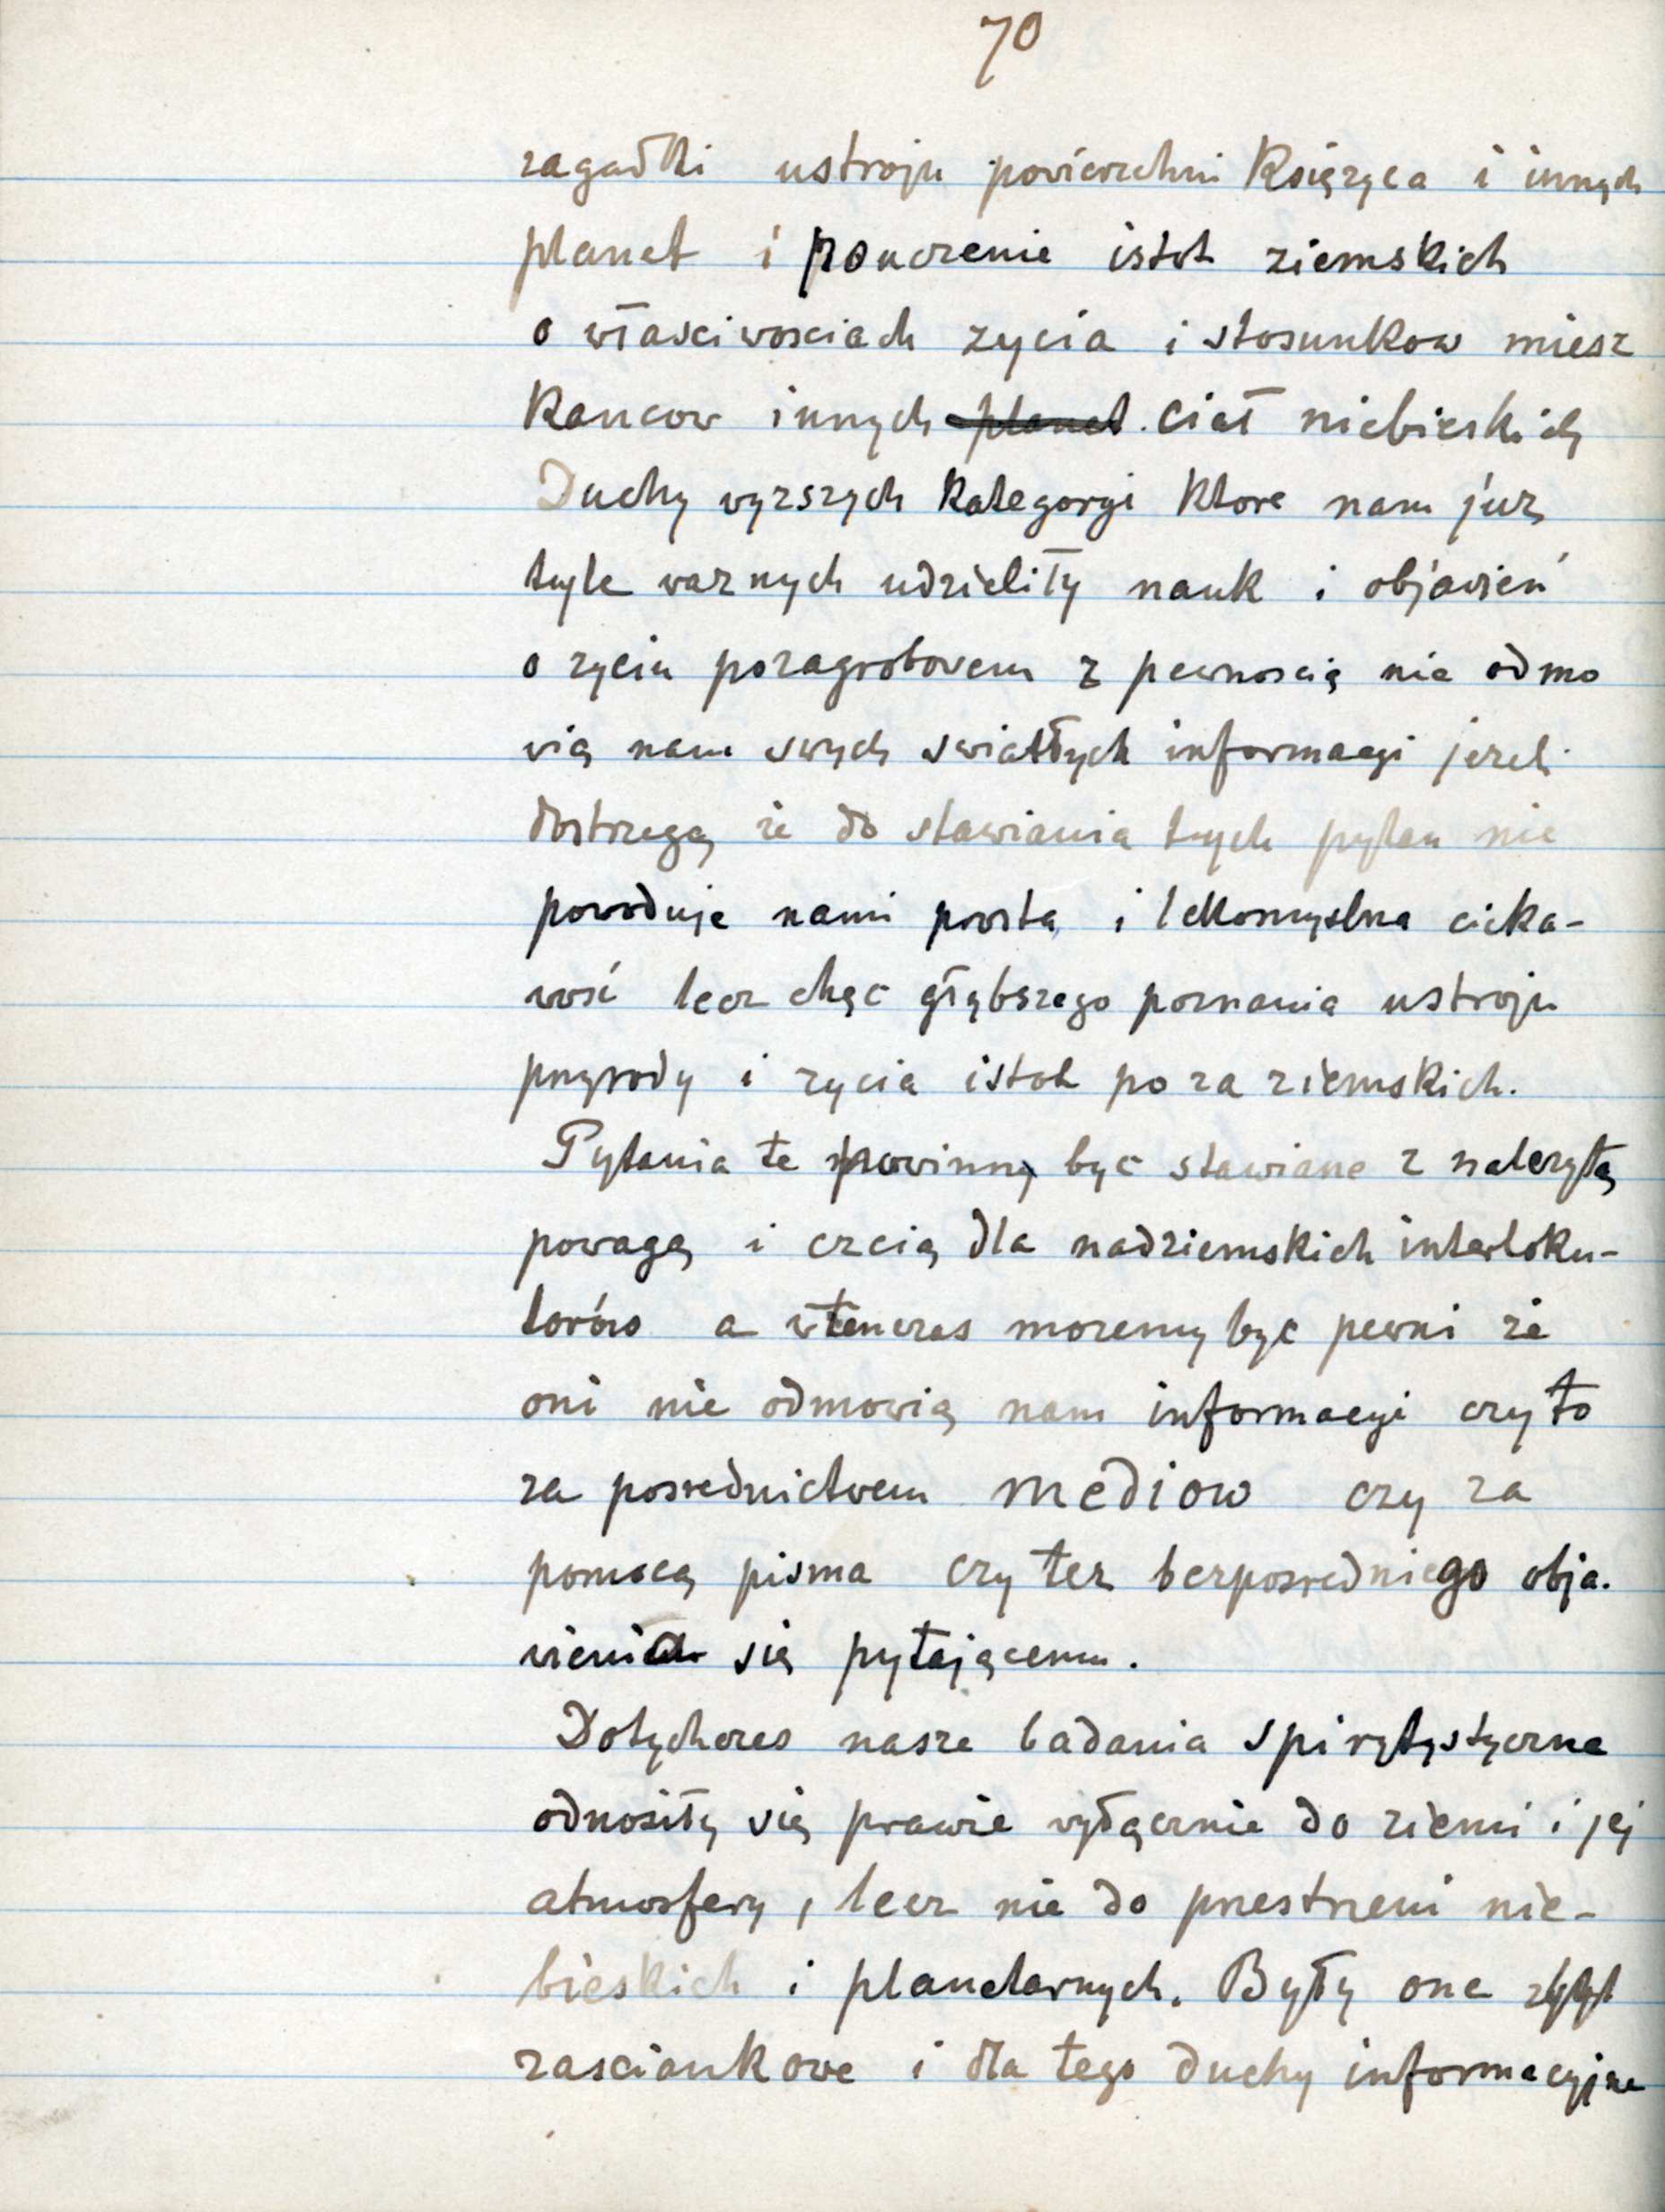 70
zagadki ustroju powierzchni Księzyca i innych
planet i pouczenie istot ziemskich
o właściwosciach zycia i stosunkow miesz
kancow innych planet ciał niebieskich
Duchy wyzszych kategorgi ktore nam juz
tyle waznych udzieliły nauk i objawień
o zyciu pozagrobowem z pewnoscią nie odmo
wią nam swych swiatłych informacyi jezeli
dostrzegą ze do stawiania tych pytan nie
powoduje nami prosta i lekkomyslna cieka-
wosć lecz chęc głębszego poznania ustroju
przyrody i zycia istot poza ziemskich.
Pytania te powinny byc stawiane z nalezytą
powagą i czcią dla nadziemskich interloku-
torów a wtenczas mozemy byc pewni ze
oni nie odmowią nam informacyi czy to
za posrednictwem mediow czy za
pomocą pisma czy tez bezposredniego obja-
wienia się pytającemu.
Dotychczas nasze badania spirytystyczne
odnosiły się prawie wyłącznie do ziemi i jej
atmosfery, lecz nie do przestrzeni nie-
bieskich i planetarnych. Były one zbyt
zasciankowe i dla tego duchy informacyjne